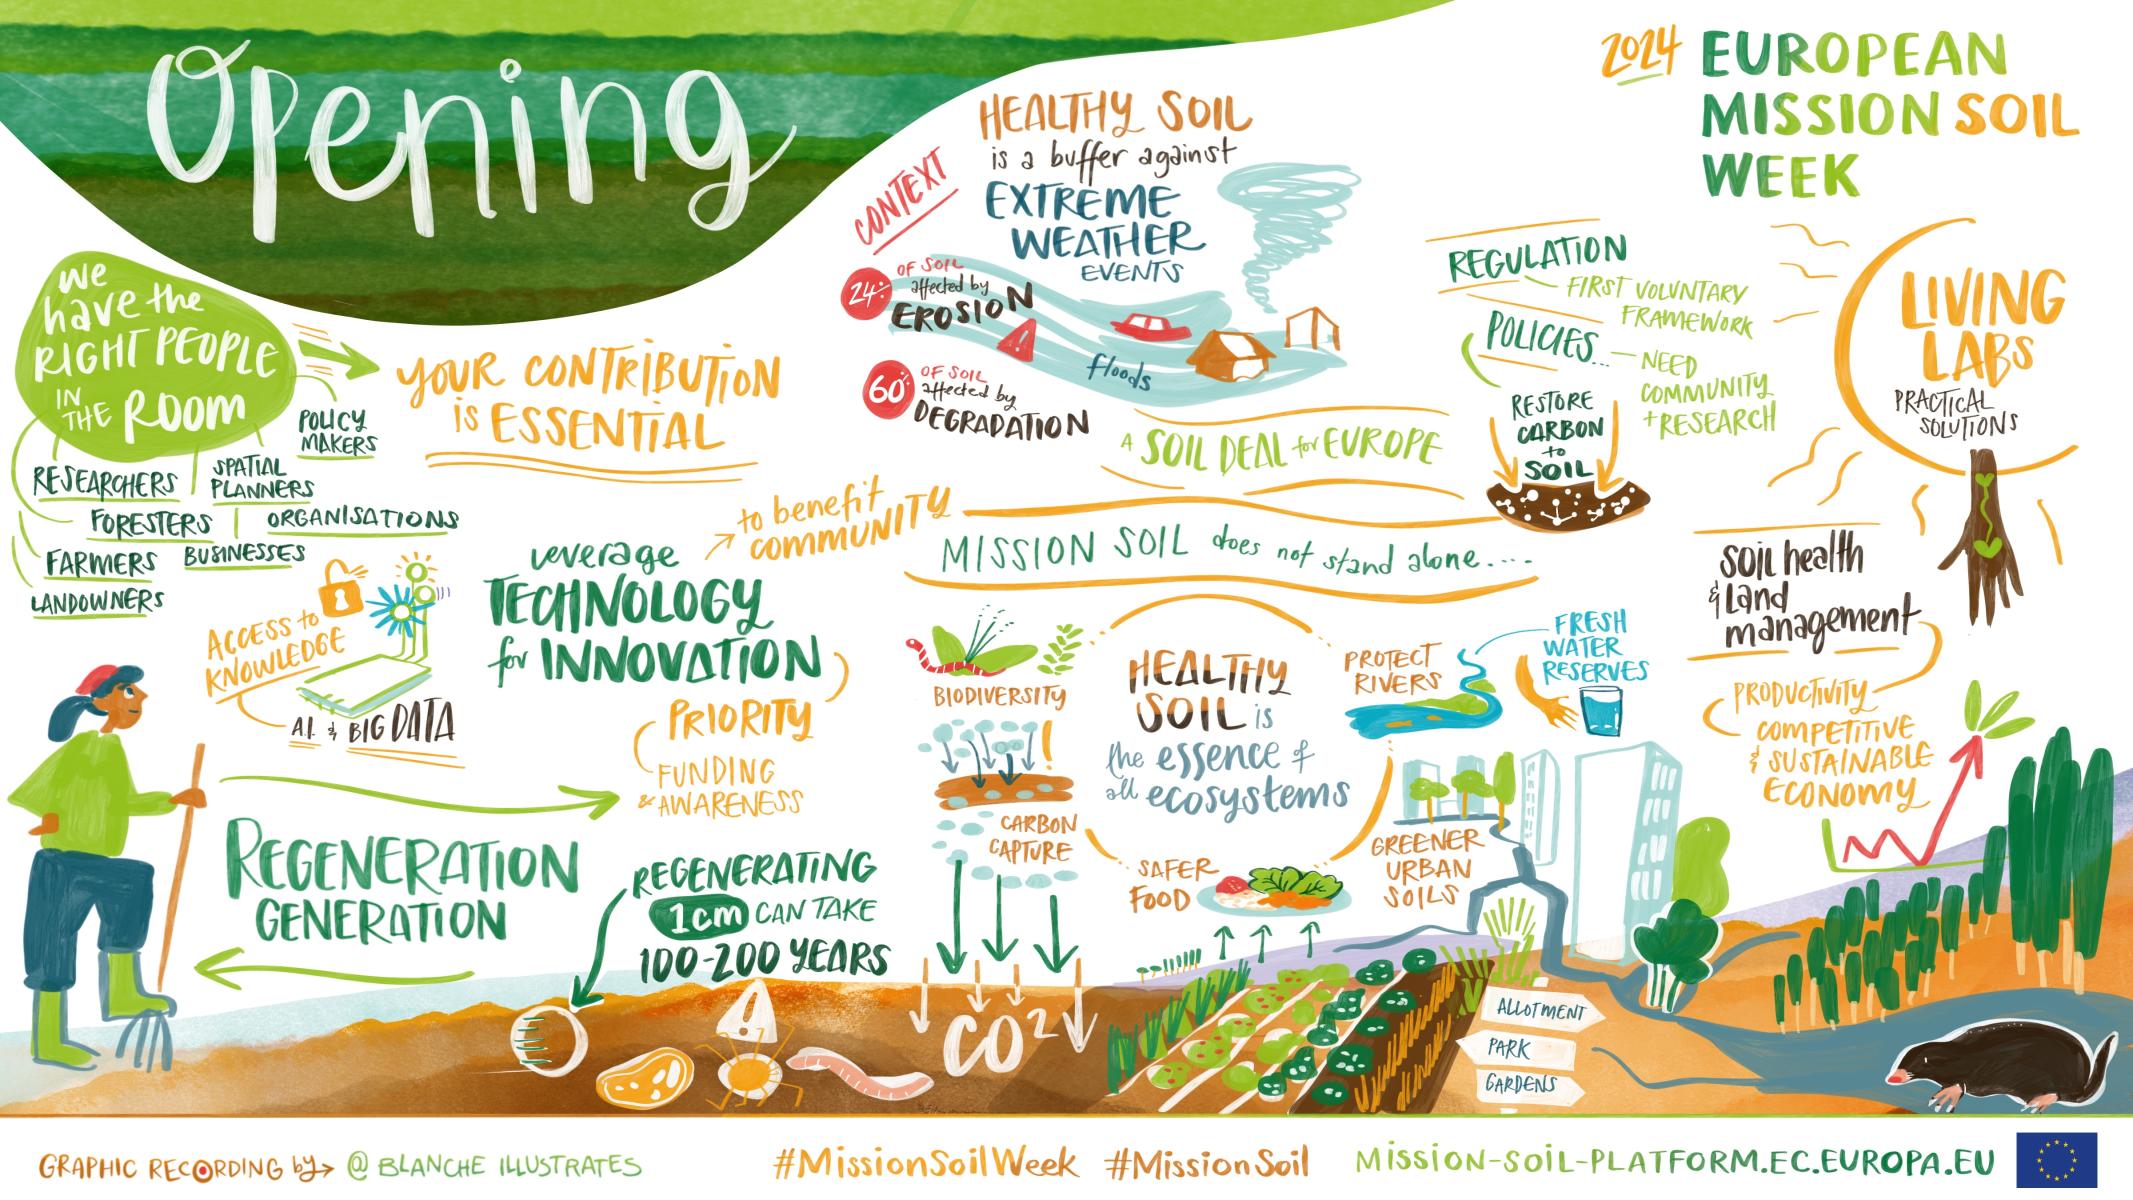 Opening
2024 EUROPEAN
MISSION SOIL
WEEK
we
have the
RIGHT PEOPLE
IN
THE ROOM
POLICY
MAKERS
RESEARCHERS
SPATIAL
PLANNERS
FORESTERS
ORGANISATIONS
FARMERS
BUSINESSES
LANDOWNERS
YOUR CONTRIBUTION
is ESSENTIAL
ACCESS to
KNOWLEDGE
A.I. & BIG DATA
leverage
TECHNOLOGY
for INNOVATION
to benefit
COMMUNITY
PRIORITY
FUNDING
& AWARENESS
REGENERATION
GENERATION
REGENERATING
1cm CAN TAKE
100-200 YEARS
CONTEXT
HEALTHY SOIL
is a buffer against
EXTREME
WEATHER
EVENTS
24% OF SOIL
affected by
EROSION
floods
60% OF SOIL
affected by
DEGRADATION
A SOIL DEAL for EUROPE
MISSION SOIL does not stand alone....
REGULATION
FIRST VOLUNTARY
FRAMEWORK
POLICIES...
NEED
COMMUNITY
+ RESEARCH
RESTORE
CARBON
to
SOIL
LIVING
LABS
PRACTICAL
SOLUTIONS
soil health
& Land
management
PRODUCTIVITY
COMPETITIVE
& SUSTAINABLE
ECONOMY
HEALTHY
SOIL is
the essence of
all ecosystems
BIODIVERSITY
CARBON
CAPTURE
CO2
PROTECT
RIVERS
FRESH
WATER
RESERVES
GREENER
URBAN
SOILS
SAFER
FOOD
ALLOTMENT
PARK
GARDENS
GRAPHIC RECORDING by → @ BLANCHE ILLUSTRATES
#MissionSoilWeek #MissionSoil
MISSION-SOIL-PLATFORM.EC.EUROPA.EU